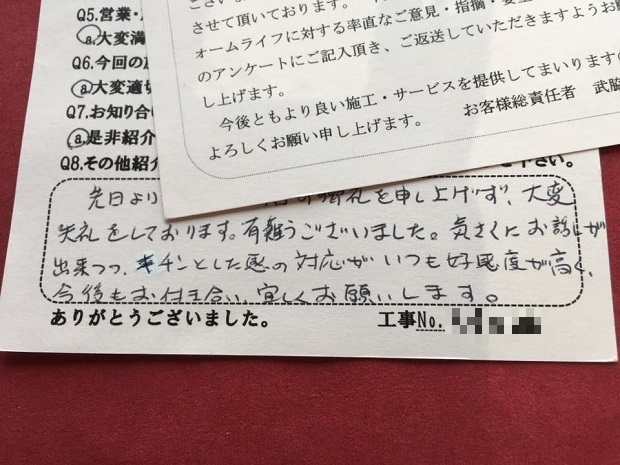 Q5.営業・
ⓐ大変満
Q6.今回の
ⓐ大変適切
Q7.お知り合い
ⓐ是非紹介
Q8.その他紹介
させて頂いております。
ォームライフに対する率直なご意見・指摘・要望
のアンケートにご記入頂き、ご返送していただきますようお
し上げます。
今後ともより良い施工・サービスを提供してまいりますの
よろしくお願い申し上げます。 お客様総責任者 武脇
下さい。
先日より 御礼を申し上げず、大変
失礼をしております。有難うございました。気さくにお話しが
出来つつ、キチンとした感の対応がいつも好感度が高く、
今後もお付き合い、宜しくお願いします。
ありがとうございました。 工事No.